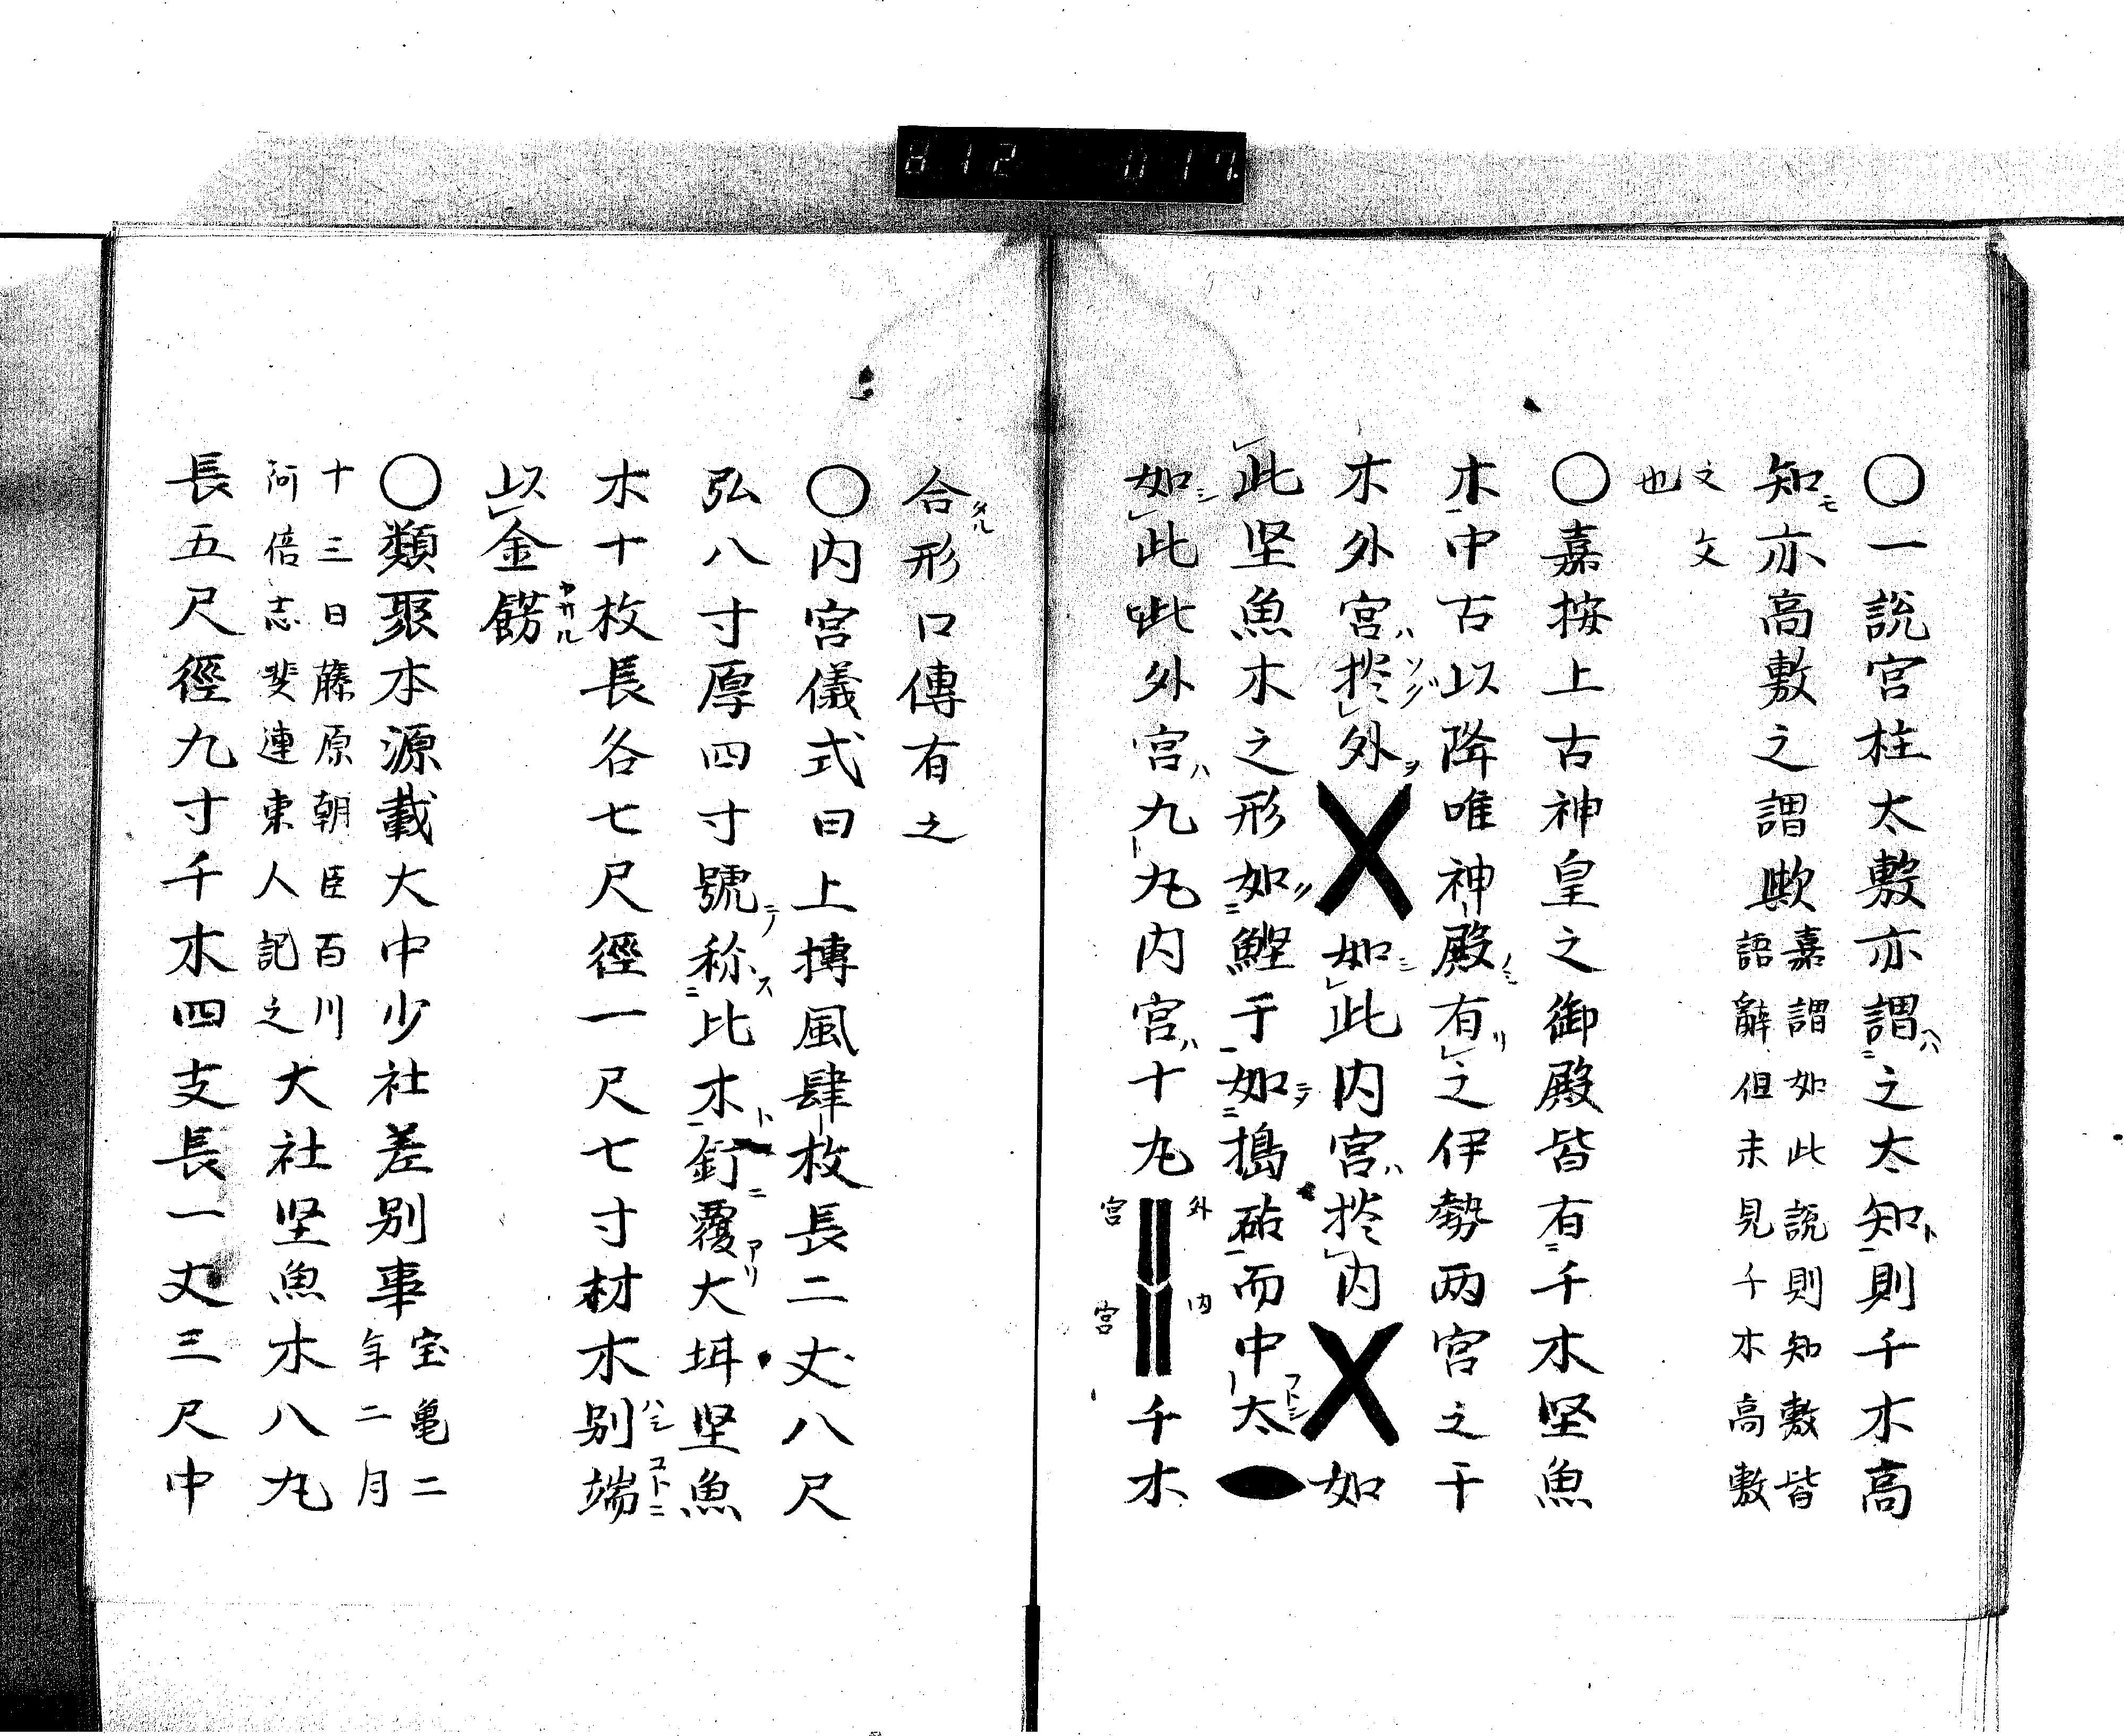 812 017
〇一説宮柱太敷亦謂之太知則千木高
知亦高敷之謂歟嘉謂如此説則知敷皆
語辭但未見千木高敷
文文
也
〇嘉按上古神皇之御殿皆有千木坚魚
木中古以降唯神殿有之伊勢两宮之千
木外宮ハ㧾外ヲ如此内宮ハ㧾内如
此坚魚木之形如鰹于如搗砧而中太
如此此外宮ハ九丸内宮ハ十丸外宮内宮千木
合形口傳有之
〇内宮儀式曰上搏風肆枚長二丈八尺
弘八寸厚四寸號称比木釘覆大坩坚魚
木十枚長各七尺徑一尺七寸材木别端
以金餝
〇類聚本源載大中少社差别事宝亀二
年二月
十三日藤原朝臣百川
阿倍志斐連東人記之大社坚魚木八丸
長五尺徑九寸千木四支長一丈三尺中